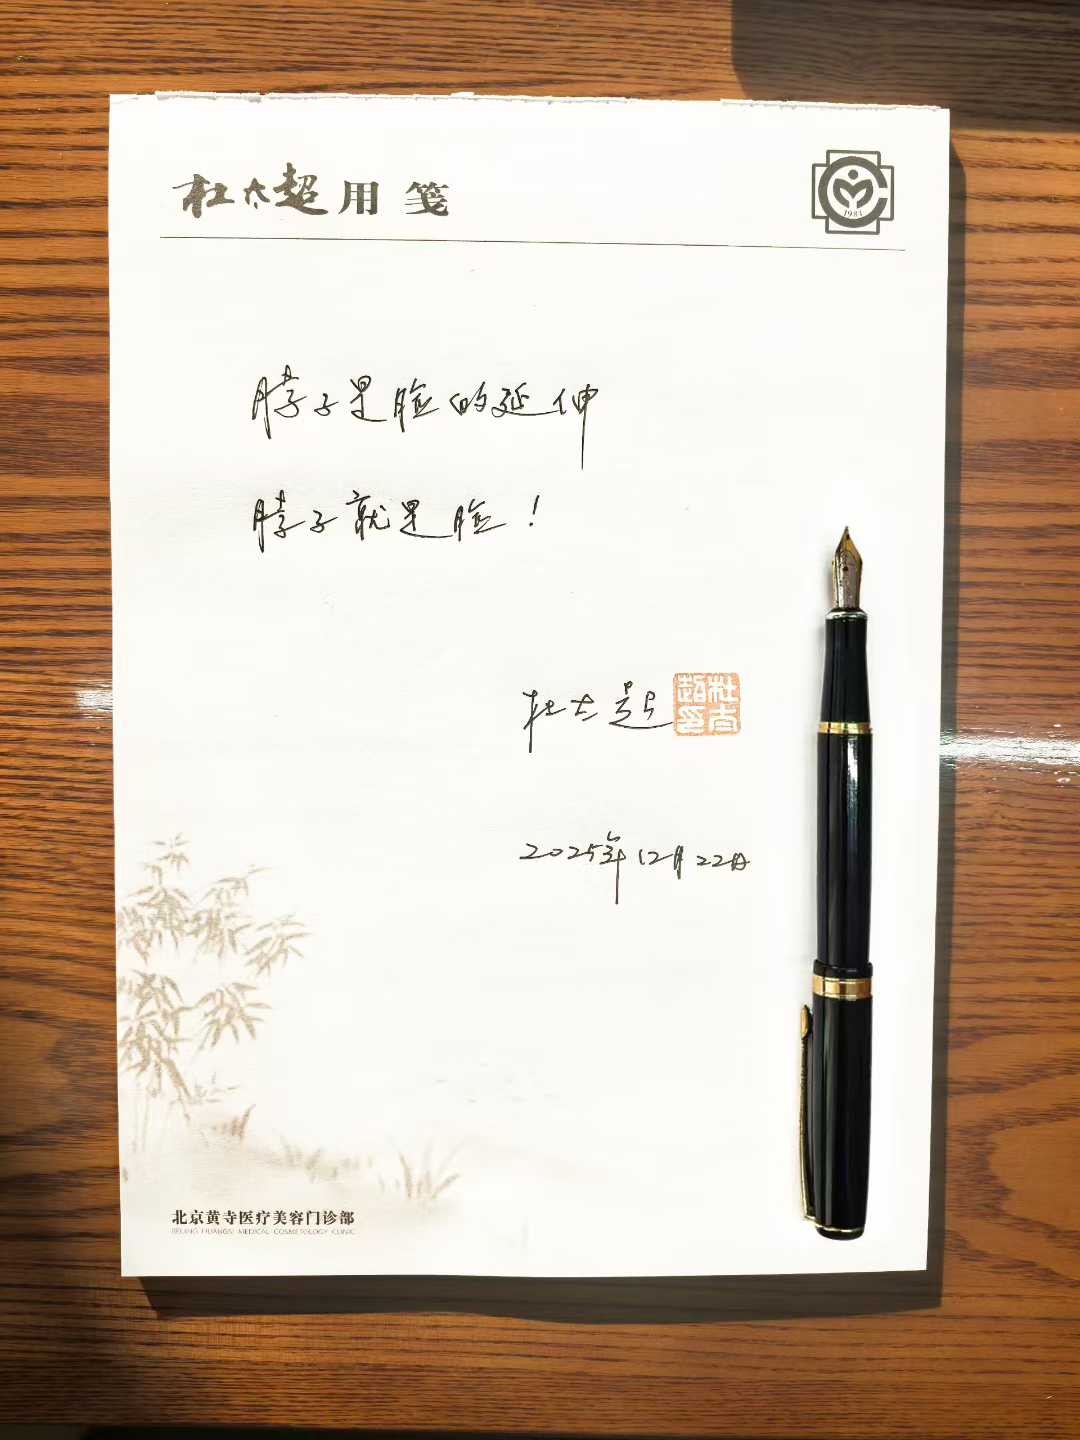 杜太超用笺
1984
脖子是脸的延伸
脖子就是脸！
杜太超
杜太超印
2025年12月22日
北京黄寺医疗美容门诊部
BEIJING HUANGSI MEDICAL COSMETOLOGY CLINIC